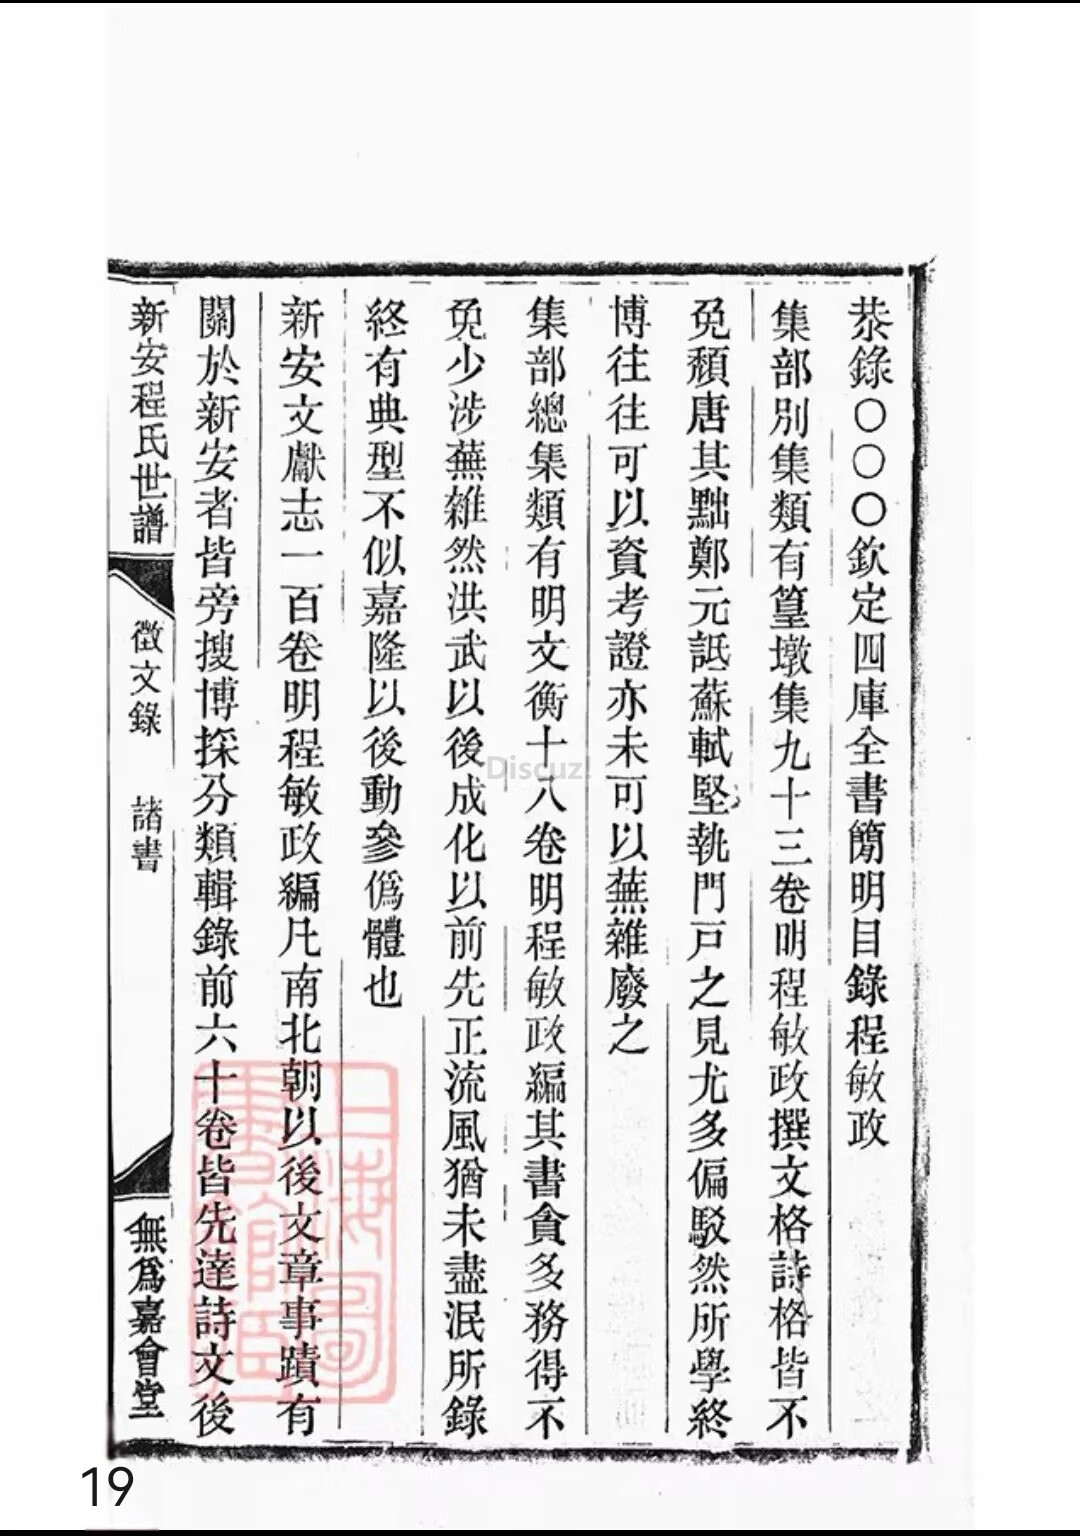 恭錄〇〇〇欽定四庫全書簡明目錄程敏政
集部別集類有篁墩集九十三卷明程敏政撰文格詩格皆不
免頹唐其黜鄭元詆蘇軾堅執門戸之見尤多偏駁然所學終
博往往可以資考證亦未可以蕪雜廢之
集部總集類有明文衡十八卷明程敏政編其書貪多務得不
免少涉蕪雜然洪武以後成化以前先正流風猶未盡泯所錄
終有典型不似嘉隆以後動參僞體也
新安文獻志一百卷明程敏政編凡南北朝以後文章事蹟有
關於新安者皆旁搜博採分類輯錄前六十卷皆先達詩文後
新安程氏世譜 徵文錄 諸書 無爲嘉會堂
上海圖書館藏
Discuz!
19